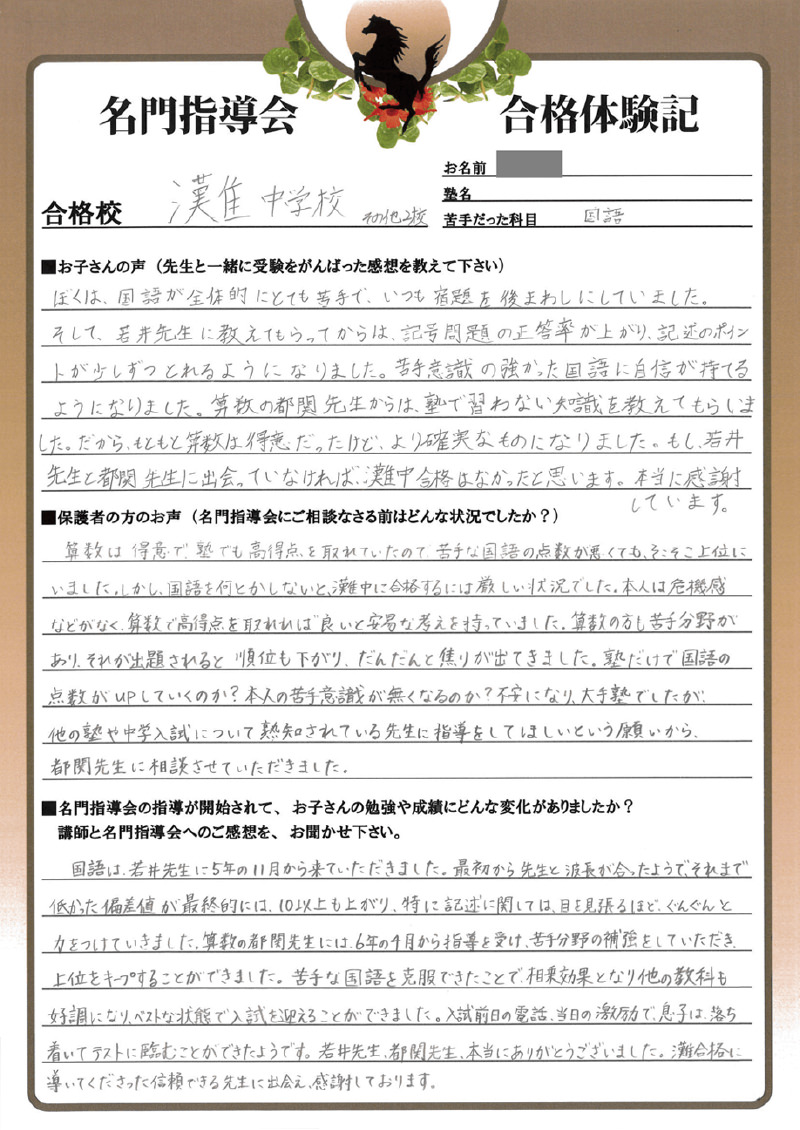 名門指導会 合格体験記
お名前
塾名
合格校 灘中学校 その他2校
苦手だった科目 国語
■お子さんの声（先生と一緒に受験をがんばった感想を教えて下さい）
ぼくは、国語が全体的にとても苦手で、いつも宿題を後まわしにしていました。
そして、若井先生に教えてもらってからは、記号問題の正答率が上がり、記述のポイン
トが少しずつとれるようになりました。苦手意識の強かった国語に自信が持てる
ようになりました。算数の都関先生からは、塾で習わない知識を教えてもらいま
した。だから、もともと算数は得意だったけど、より確実なものになりました。もし、若井
先生と都関先生に出会っていなければ、灘中合格はなかったと思います。本当に感謝
しています。
■保護者の方のお声（名門指導会にご相談なさる前はどんな状況でしたか？）
算数は得意で、塾でも高得点を取れていたので、苦手な国語の点数が悪くても、そこそこ上位に
いました。しかし、国語を何とかしないと、灘中に合格するには厳しい状況でした。本人は危機感
などがなく、算数で高得点を取れれば良いと安易な考えを持っていました。算数の方も苦手分野が
あり、それが出題されると順位も下がり、だんだんと焦りが出てきました。塾だけで国語の
点数がUPしていくのか？本人の苦手意識が無くなるのか？不安になり、大手塾でしたが、
他の塾や中学入試について熟知されている先生に指導をしてほしいという願いから、
都関先生に相談させていただきました。
■名門指導会の指導が開始されて、お子さんの勉強や成績にどんな変化がありましたか？
講師と名門指導会へのご感想を、お聞かせ下さい。
国語は、若井先生に5年の11月から来ていただきました。最初から先生と波長が合ったようで、それまで
低かった偏差値が最終的には、10以上も上がり、特に記述に関しては、目を見張るほど、ぐんぐんと
力をつけていきました。算数の都関先生には、6年の4月から指導を受け、苦手分野の補強をしていただき、
上位をキープすることができました。苦手な国語を克服できたことで、相乗効果となり他の教科も
好調になり、ベストな状態で入試を迎えることができました。入試前日の電話、当日の激励で、息子は、落ち
着いてテストに臨むことができたようです。若井先生、都関先生、本当にありがとうございました。灘合格に
導いてくださった信頼できる先生に出会え、感謝しております。